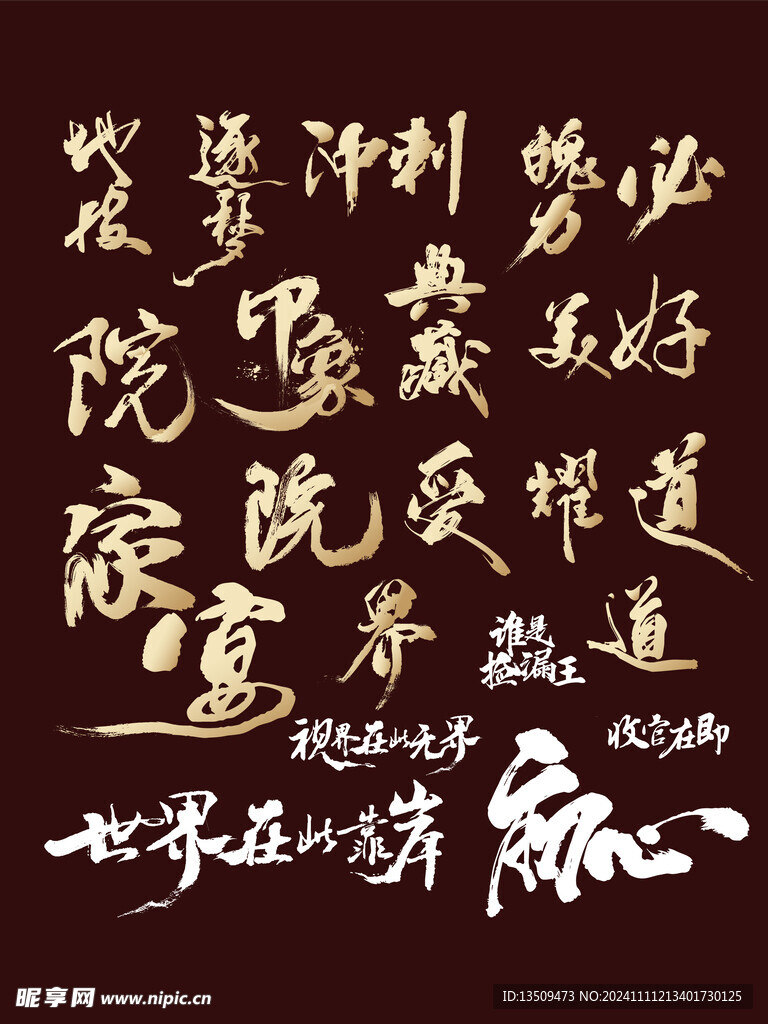 逐梦
冲刺
魄力
必
院
印象
典藏
美好
家宴
院
受
耀
道
界
谁是
捡漏王
道
视界在此无界
收官在即
世界在此靠岸
初心
昵享网 www.nipic.cn
ID:13509473 NO:20241111213401730125